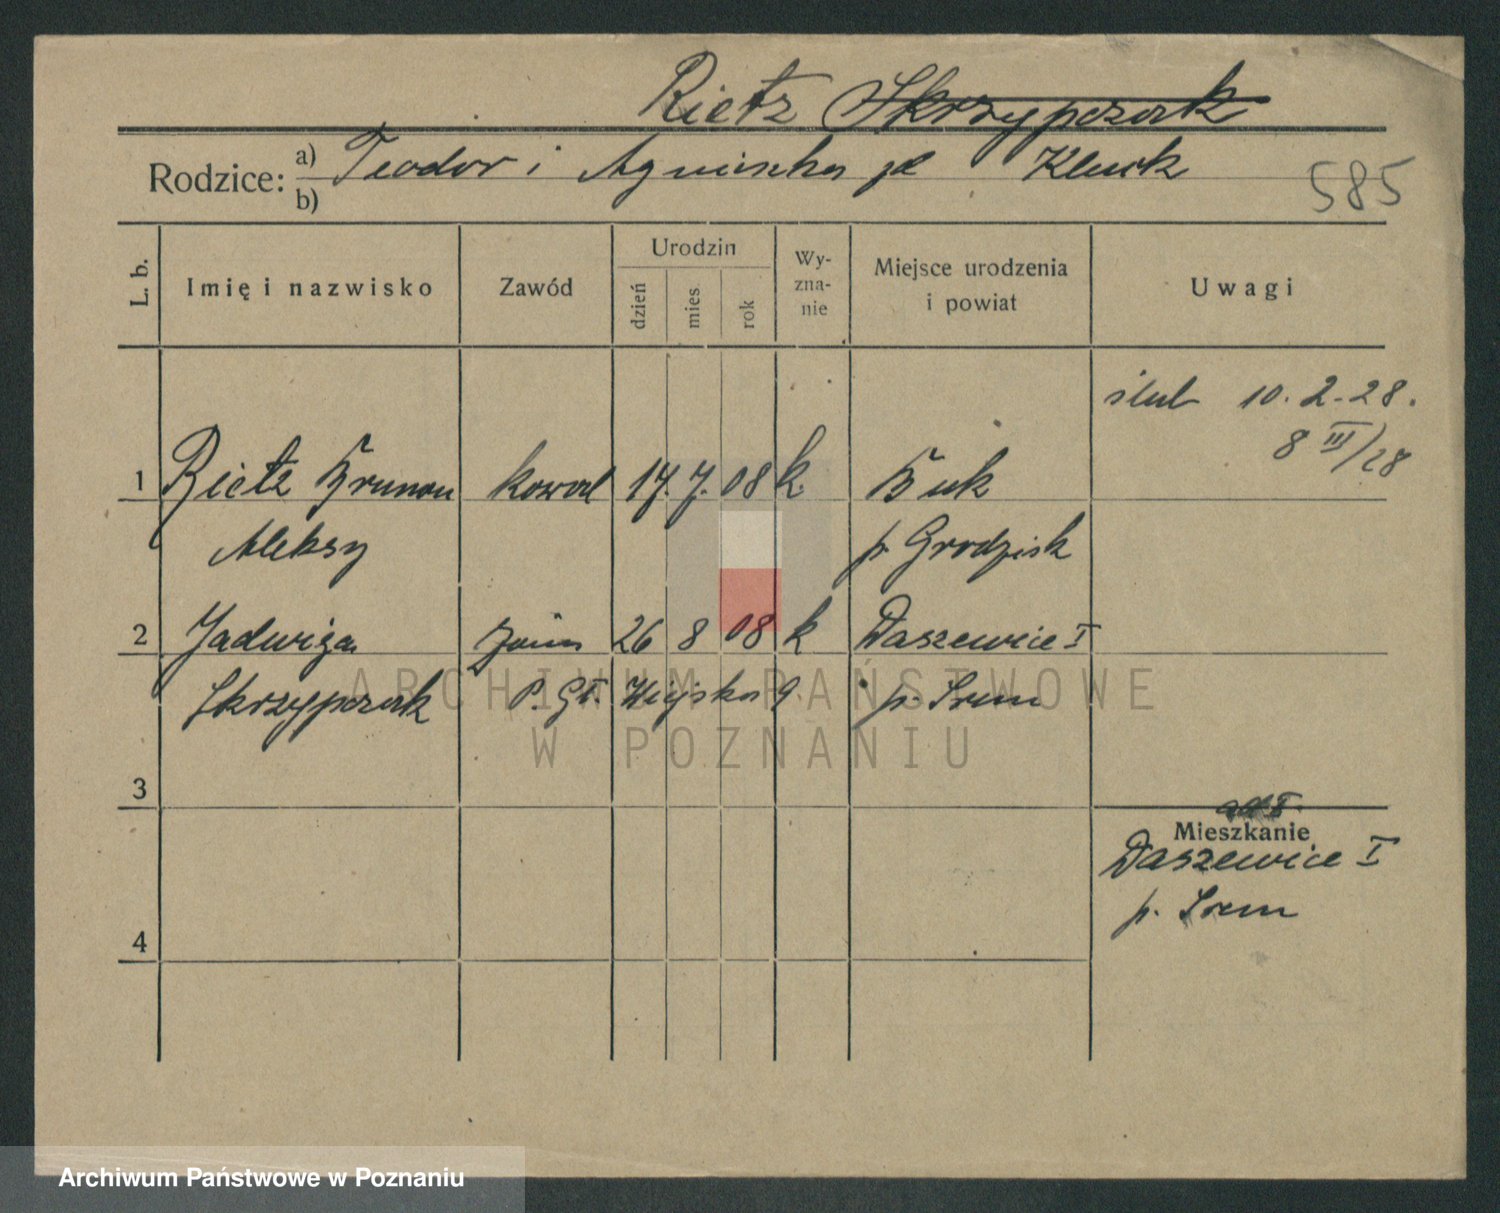 Rietz Skrzypczak
Rodzice: a) Teodor i Agnieszka
b)
585
L. b. Imię i nazwisko Zawód Urodzin dzień mies rok Wy-zna-nie Miejsce urodzenia i powiat Uwagi
ślub 10. 2. 28.
8 III/28
1 Rietz Brunon kowal 17. 7. 08 k. Buk
Aleksy p. Grodzisk
2 Jadwiga 26 8 08 k Daszewice I
Skrzypczak Wiejska 9 p. Śrem
3
4
Mieszkanie
Daszewice I
p. Śrem
ARCHIWUM PAŃSTWOWE
W POZNANIU
Archiwum Państwowe w Poznaniu